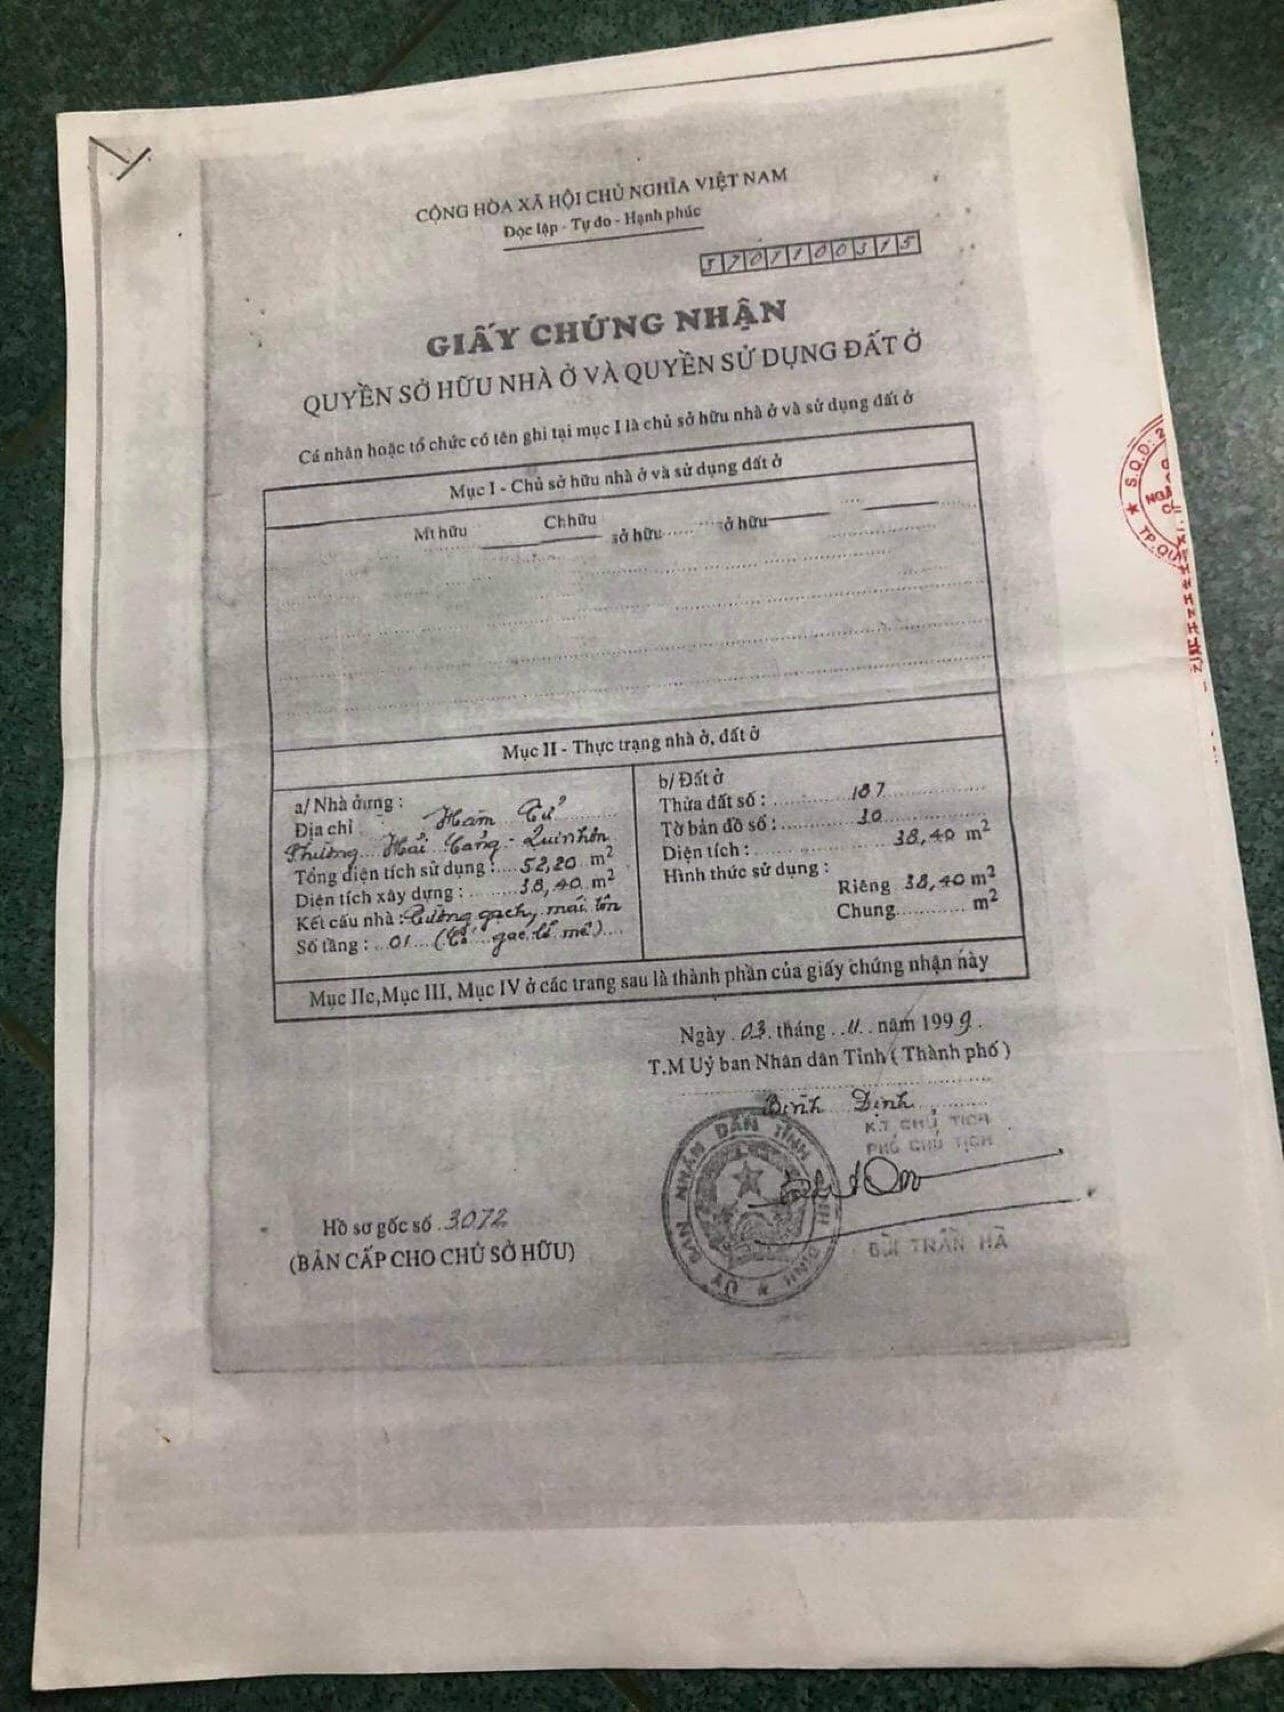 CỘNG HÒA XÃ HỘI CHỦ NGHĨA VIỆT NAM
Độc lập - Tự do - Hạnh phúc
5701100315
GIẤY CHỨNG NHẬN
QUYỀN SỞ HỮU NHÀ Ở VÀ QUYỀN SỬ DỤNG ĐẤT Ở
Cá nhân hoặc tổ chức có tên ghi tại mục I là chủ sở hữu nhà ở và sử dụng đất ở
Mục I - Chủ sở hữu nhà ở và sử dụng đất ở
Mt hữu Chhữu sở hữu ở hữu
Mục II - Thực trạng nhà ở, đất ở
a/ Nhà ởựng :
Địa chỉ : Hàm Tử
Phường Hải Cảng - Quinhơn
Tổng diện tích sử dụng : 52,20 m²
Diện tích xây dựng : 38,40 m²
Kết cấu nhà : Tường gạch, mái tôn
Số tầng : 01 (Có gác lỡ mê)
b/ Đất ở
Thửa đất số : 187
Tờ bản đồ số : 10
Diện tích : 38,40 m²
Hình thức sử dụng :
Riêng 38,40 m²
Chung m²
Mục IIc,Mục III, Mục IV ở các trang sau là thành phần của giấy chứng nhận này
Ngày 03 tháng 11 năm 1999.
T.M Uỷ ban Nhân dân Tỉnh ( Thành phố )
Bình Định
K.T CHỦ TỊCH
PHÓ CHỦ TỊCH
ỦY BAN NHÂN DÂN TỈNH BÌNH ĐỊNH
BÙI TRẦN HÀ
Hồ sơ gốc số 3072
(BẢN CẤP CHO CHỦ SỞ HỮU)
★ S.Q.D: 2
TP.QU